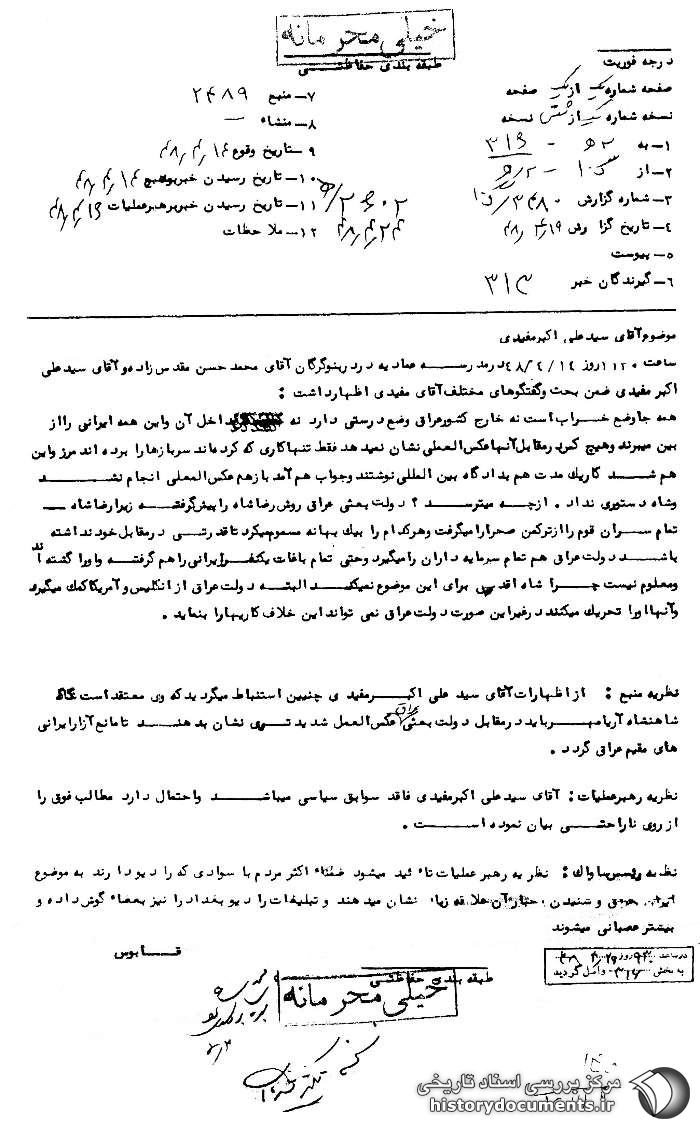 خیلی محرمانه
طبقه بندی حفاظتی
درجه فوریت
صفحه شماره یک از یک صفحه
نسخه شماره یک از شش نسخه
۱ـ به ۳۱۶
۲ـ از
۳ـ شماره گزارش
۴ـ تاریخ گزارش ۴۸/۴/۱۹
۵ـ پیوست
۶ـ گیرندگان خبر ۳۱۳
۷ـ منبع ۲۴۸۹
۸ـ منشاء ـ
۹ـ تاریخ وقوع ۴۸/۴/۱۴
۱۰ـ تاریخ رسیدن خبر بمنبع ۴۸/۴/۱۴
۱۱ـ تاریخ رسیدن خبر برهبرعملیات ۴۸/۴/۱۶
۱۲ـ ملاحظات
۴۸/۴/۲۴
موضوع آقای سیدعلی اکبرمفیدی
ساعت روز ۴۸/۴/۱۴ درمدرسه عمادیه در بینوگرگان آقای محمد حسن مقدس زاده و آقای سیدعلی
اکبر مفیدی ضمن بحث وگفتگوهای مختلف آقای مفیدی اظهارداشت :
همه جا وضع خراب است نه خارج کشور عراق وضع درستی دارد نه داخل آن واین همه ایرانی را از
بین میبرند وهیچ کس درمقابل آنها عکس العملی نشان نمیدهد فقط تنها کاری که کرده اند سربازها را برده اند مرز واین
هم شد کار یک مدت هم بدادگاه بین المللی نوشتند وجواب هم آمد بازهم عکس العملی انجام نشد
وشاه دستوری نداد . ازچه میترسد ؟ دولت بعثی عراق روش رضاشاه را پیش گرفته زیرا رضاشاه ــ
تمام سران قوم را از ترکمن صحرا میگرفت وهرکدام را بیک بهانه مسموم میکرد تا قدرتی درمقابل خود نداشته
باشد دولت عراق هم تمام سرمایه داران را میگیرد وحتی تمام باغات یکنفر ایرانی را هم گرفته و او را کشته اند
ومعلوم نیست چرا شاه اقدامی برای این موضوع نمیکند البته دولت عراق از انگلیس و آمریکا کمک میگیرد
وآنها او را تحریک میکنند درغیر این صورت دولت عراق نمی تواند این خلاف کاریها را بنماید .
نظریه منبع : از اظهارات آقای سید علی اکبر مفیدی چنین استنباط میگردید که وی معتقد است
شاهنشاه آریامهر باید درمقابل دولت بعثی عراق عکس العمل شدیدتری نشان بدهند تا مانع آزار ایرانی
های مقیم عراق گردد .
نظریه رهبرعملیات : آقای سیدعلی اکبرمفیدی فاقد سوابق سیاسی میباشد واحتمال دارد مطالب فوق را
از روی ناراحتی بیان نموده است .
نظریه رئیس ساواک : نظریه رهبر عملیات تائید میشود ضمناً اکثر مردم با سوادی که رادیو دارند به موضوع
ایران و عراق و شنیدن اخبار آن علاقه زیاد نشان میدهند و تبلیغات رادیو بغداد را نیز بعضاً گوش داده و
بیشتر عصبانی میشوند
قابوس
طبقه بندی حفاظتی
خیلی محرمانه
در ساعت روز
به بخش ۳۱۶ واصل گردید
مرکز بررسی اسناد تاریخی
historydocuments.ir